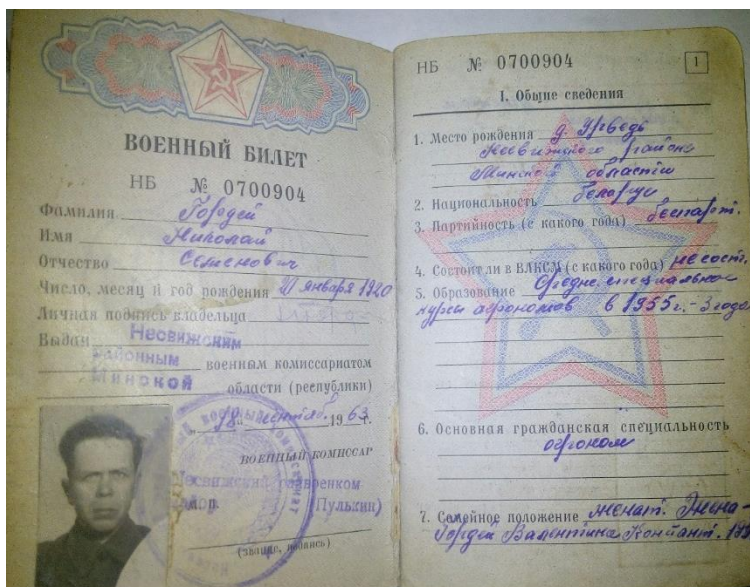 ВОЕННЫЙ БИЛЕТ
НБ № 0700904
Фамилия Гордей
Имя Николай
Отчество Семенович
Число, месяц и год рождения января 1920
Личная подпись владельца
Выдан Несвижским
районным военным комиссариатом
Минской области (республики)
1963 г.
ВОЕННЫЙ КОМИССАР
Несвижский райвоенком
Пулькин)
(звание, подпись)
НБ № 0700904
1
I. Общие сведения
1. Место рождения д. Урведь
Несвижского района
Минской области
2. Национальность белорус
3. Партийность (с какого года) беспарт.
4. Состоит ли в ВЛКСМ (с какого года) не сост.
5. Образование Средне-специальное
курсы агрономов в 1955 г. - 3 года
6. Основная гражданская специальность
агроном
7. Семейное положение женат. Жена -
Гордей Валентина